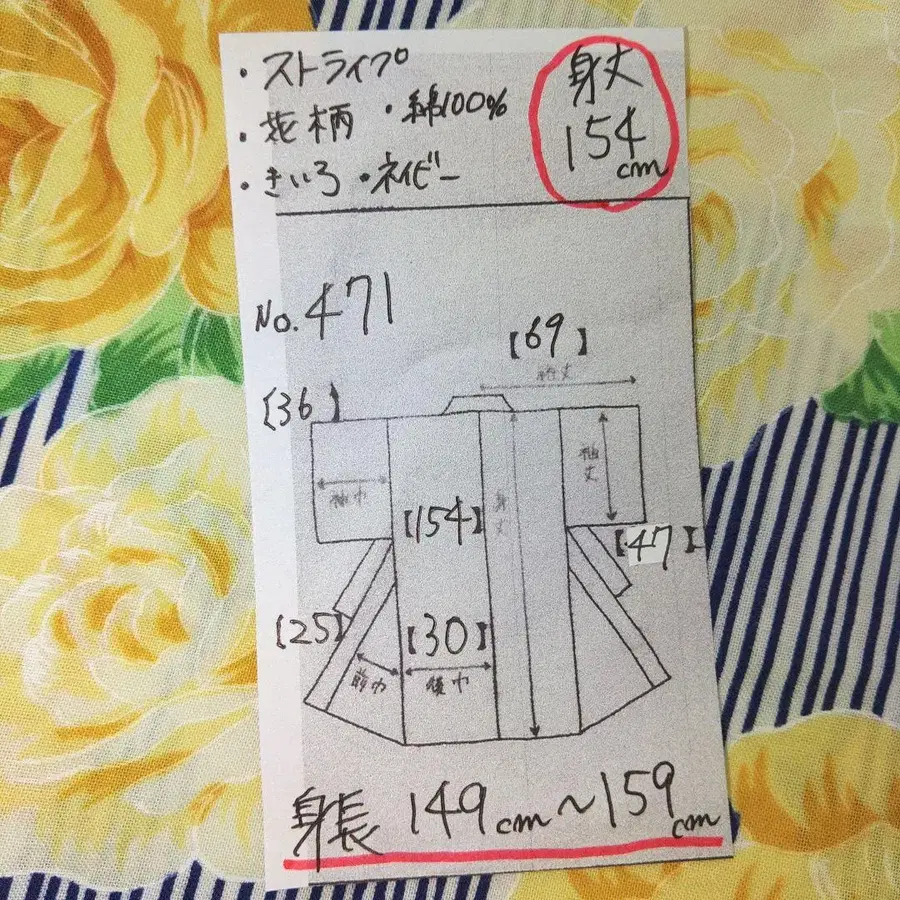 ・ストライプ
・花柄 ・綿100%
・きいろ ・ネイビー
身丈
154
cm
No.471
【69】
裄丈
【36】
袖巾
袖丈
身丈
【154】
【47】
【25】
【30】
前巾
後巾
身長 149cm~159cm